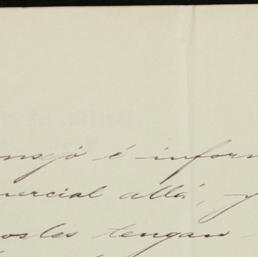 onsjo é inform
mercial allá, y
osles tengan